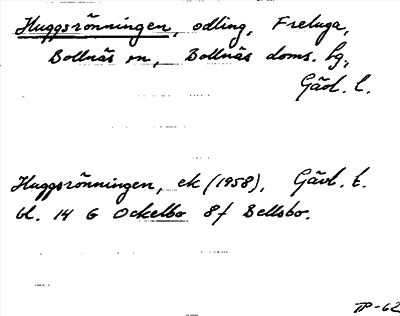 Huggsrönningen, odling, Freluga,
Bollnäs sn, Bollnäs doms. hg.,
Gävl. l.
Huggsrönningen, ek (1958), Gävl. l.
bl. 14 G Ockelbo 8f Bellsbo.
TP-62